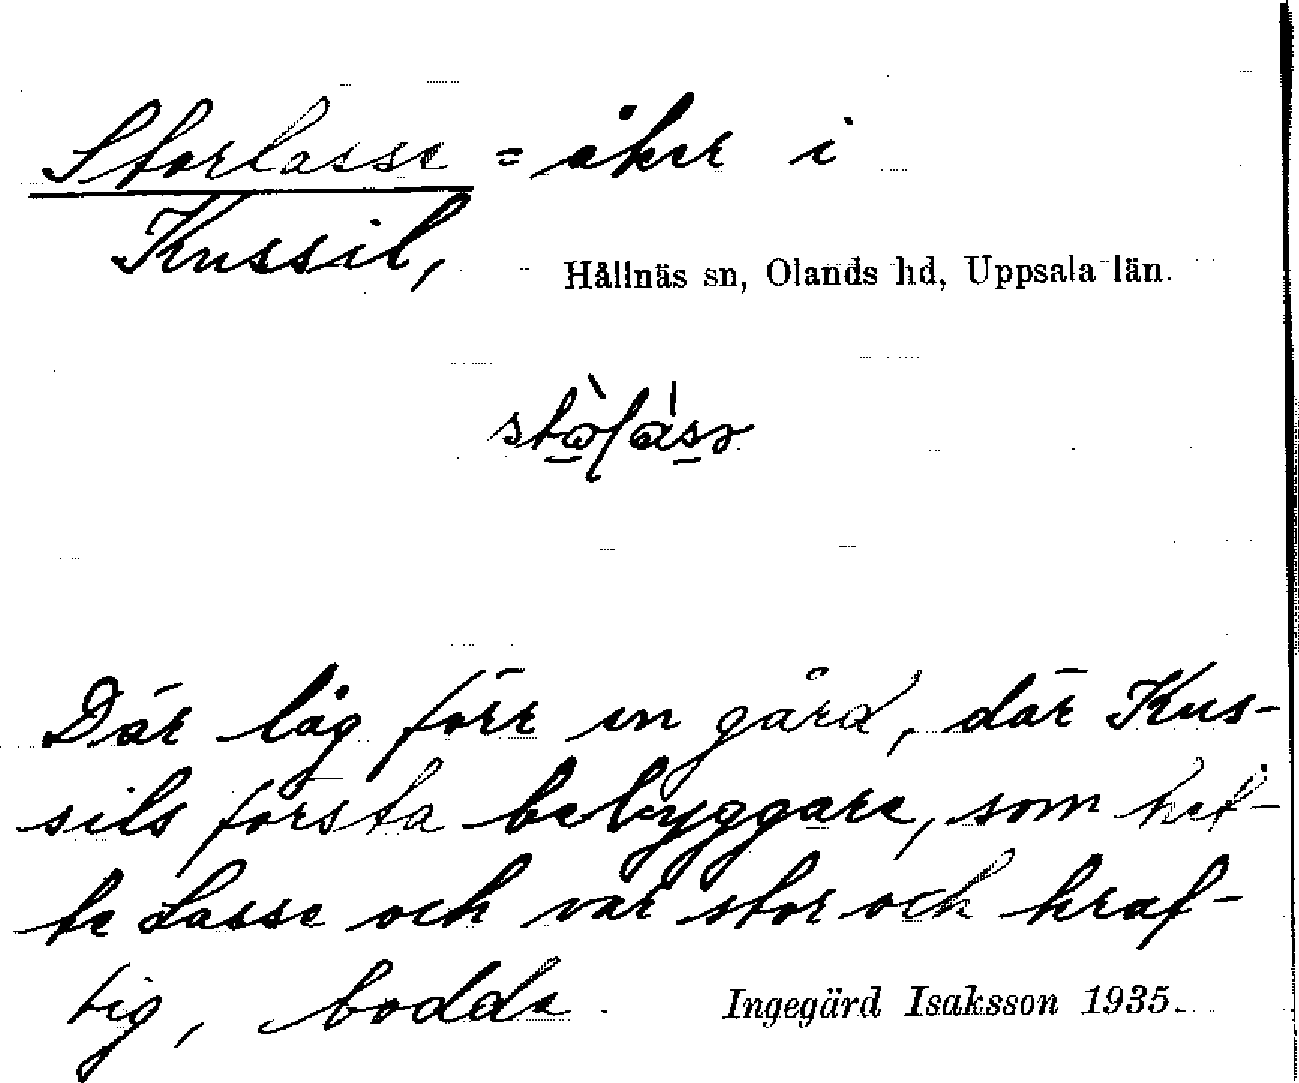 Storlasse = åker i
Kussil,
Hållnäs sn, Olands hd, Uppsala län.
Där låg förr en gård, där Kus-
sils första bebyggare, som het-
te Lasse och var stor och kraf-
tig, bodde.
Ingegärd Isaksson 1935.